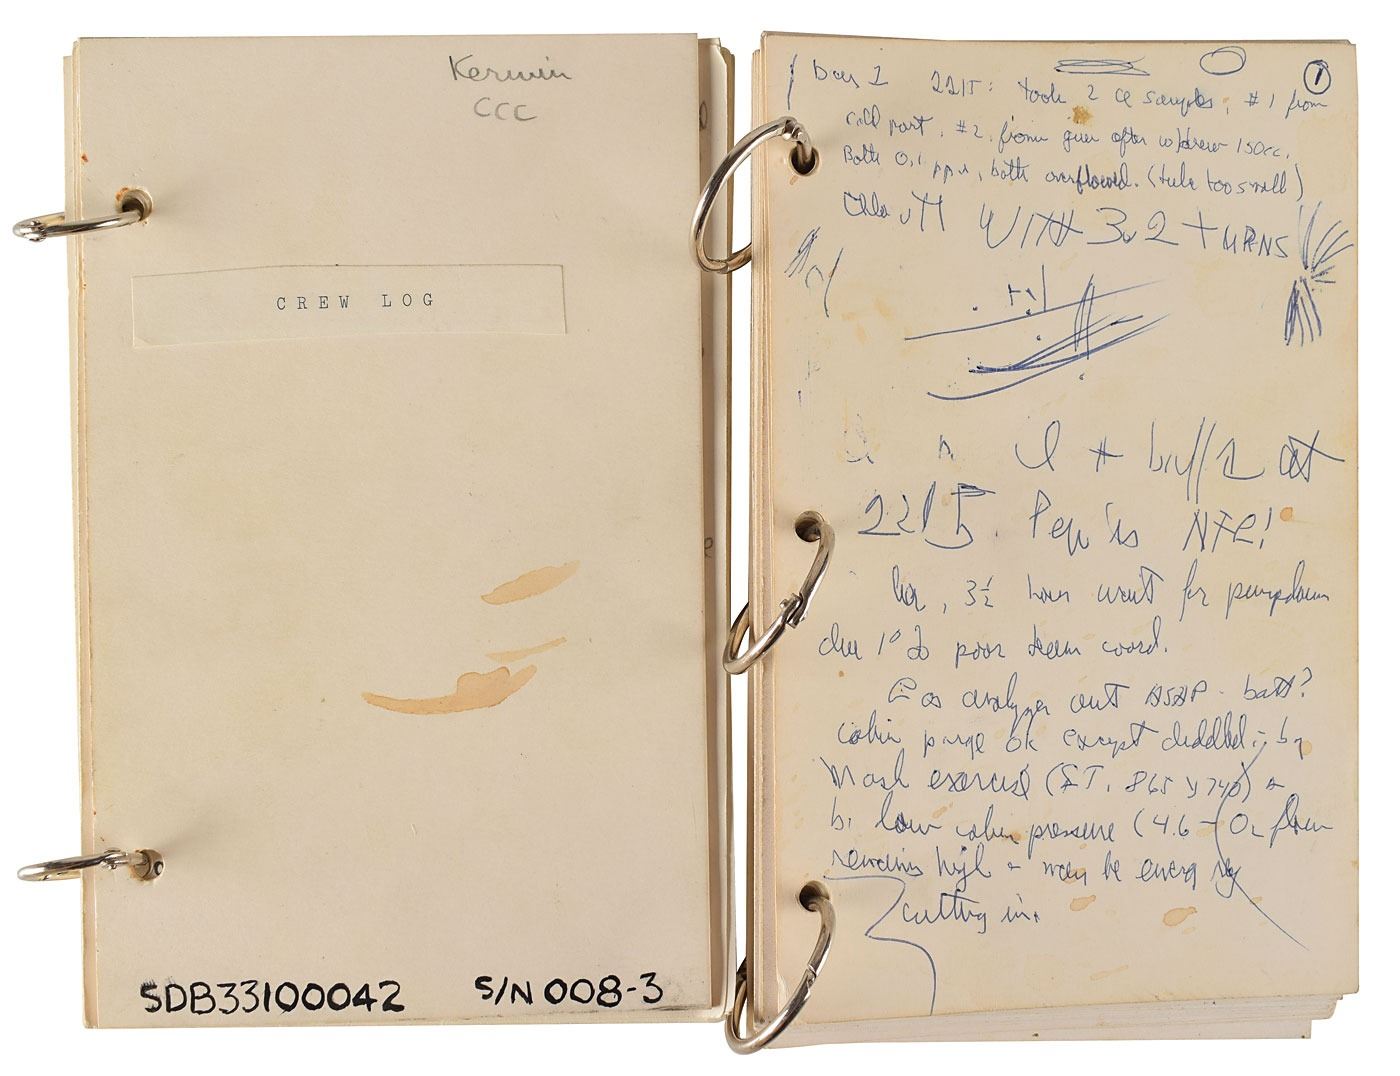 Kerwin
CCC
CREW LOG
SDB33100042 S/N 008-3
1
Day 1 2215: took 2 Cl samples, #1 from
cold port, #2 from gun after w/drew 150cc.
Both 0.1 ppm, both overflowed. (tube too small)
WITH 3.2 TURNS
at
2215. Pep is NFG!
3½ hour wait for pumpdown
due 1° to poor team coord.
Gas analyzer out ASAP - batt?
cabin purge OK except diddled by
Mask exercise (ST. 865 y 740) +
by low cabin pressure (4.6 - O2 flow
remains high + may be emerg reg
cutting in.